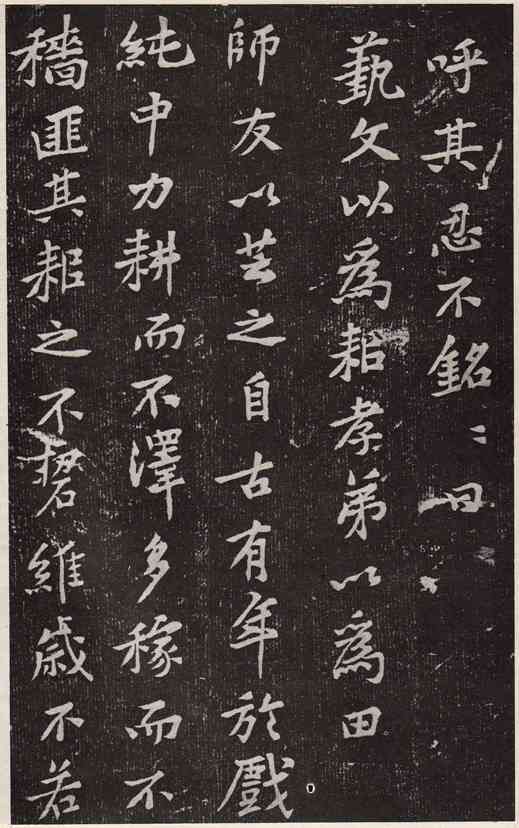 呼其忍不銘〻曰
藝文以爲耜孝弟以爲田
師友以芸之自古有年於戲
純中力耕而不澤多稼而不
穡匪其耜之不䂮維歲不若